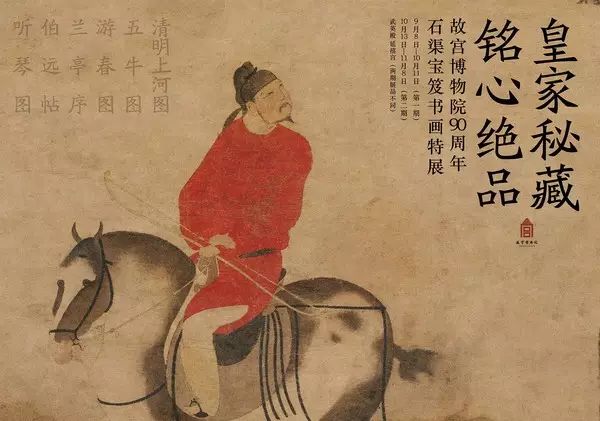 皇家秘藏
铭心绝品
故宫博物院90周年
石渠宝笈书画特展
9月8日—10月11日（第一期）
10月13日—11月8日（第二期）
武英殿 延禧宫（两期展品不同）
清明上河图
五牛图
游春图
兰亭序
伯远帖
听琴图
故宫博物院